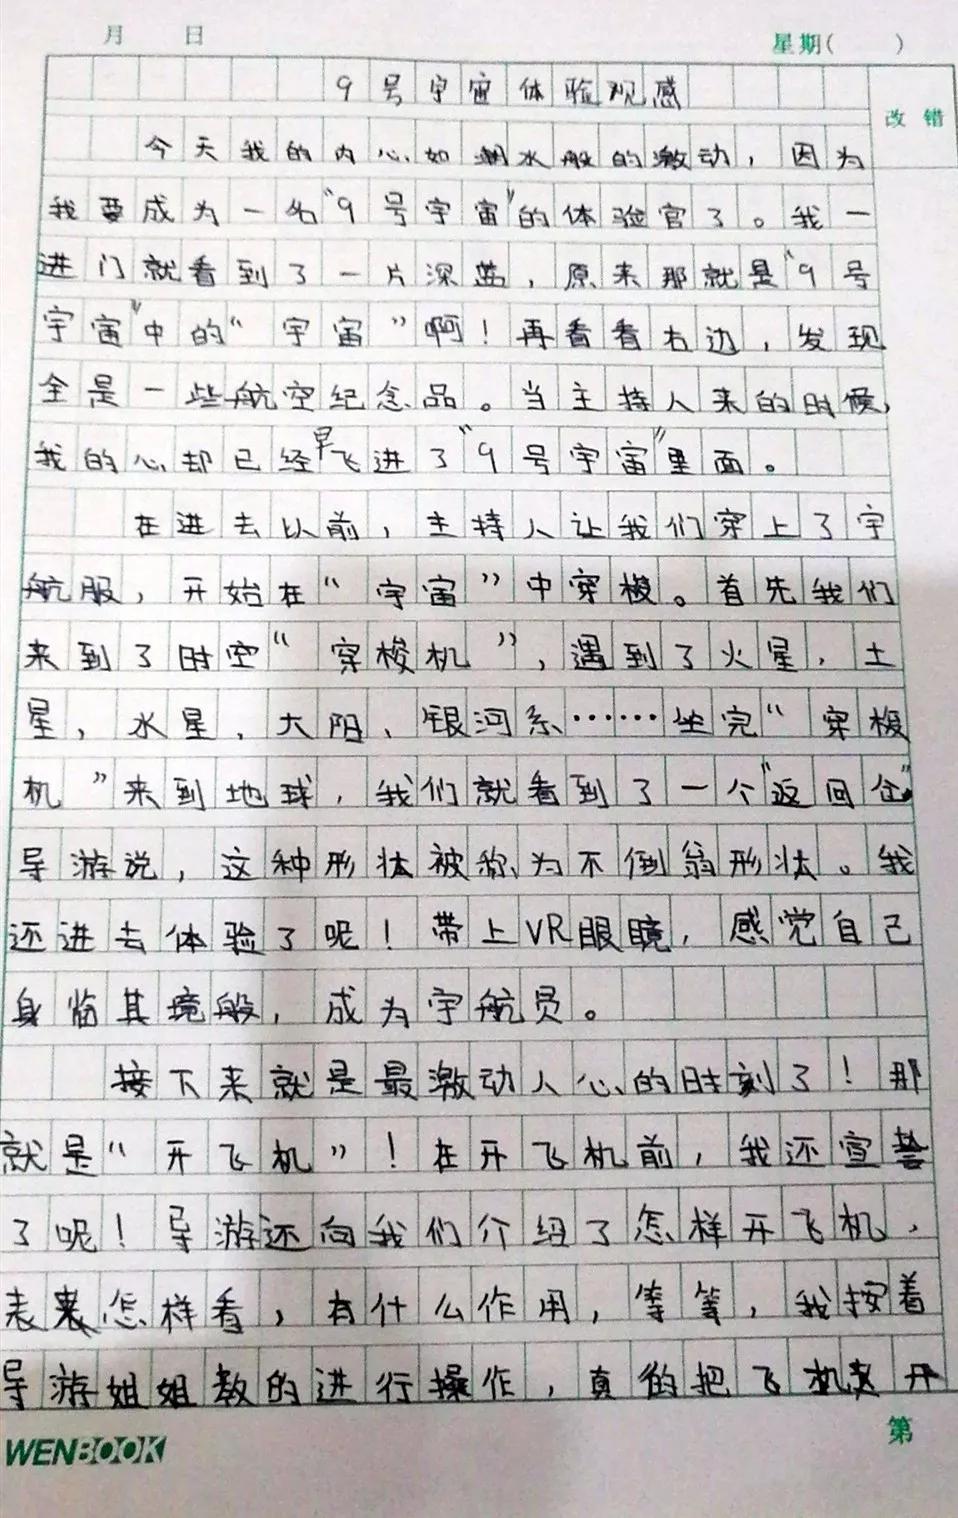 月 日 星期( )
9号宇宙体验观感
改错
今天我的内心如潮水般的激动，因为
我要成为一名“9号宇宙”的体验官了。我一
进门就看到了一片深蓝，原来那就是“9号
宇宙”中的“宇宙”啊！再看看右边，发现
全是一些航空纪念品。当主持人来的时候，
我的心却已经早飞进了“9号宇宙”里面。
在进去以前，主持人让我们穿上了宇
航服，开始在“宇宙”中穿梭。首先我们
来到了时空“穿梭机”，遇到了火星，土
星，水星，大阳、银河系……坐完“穿梭
机”来到地球，我们就看到了一个“返回仓”
导游说，这种形状被称为不倒翁形状。我
还进去体验了呢！带上VR眼镜，感觉自己
身临其境般，成为宇航员。
接下来就是最激动人心的时刻了！那
就是“开飞机”！在开飞机前，我还宣誓
了呢！导游还向我们介绍了怎样开飞机，
表怎样看，有什么作用，等等，我按着
导游姐姐教的进行操作，真的把飞机开
WENBOOK
第